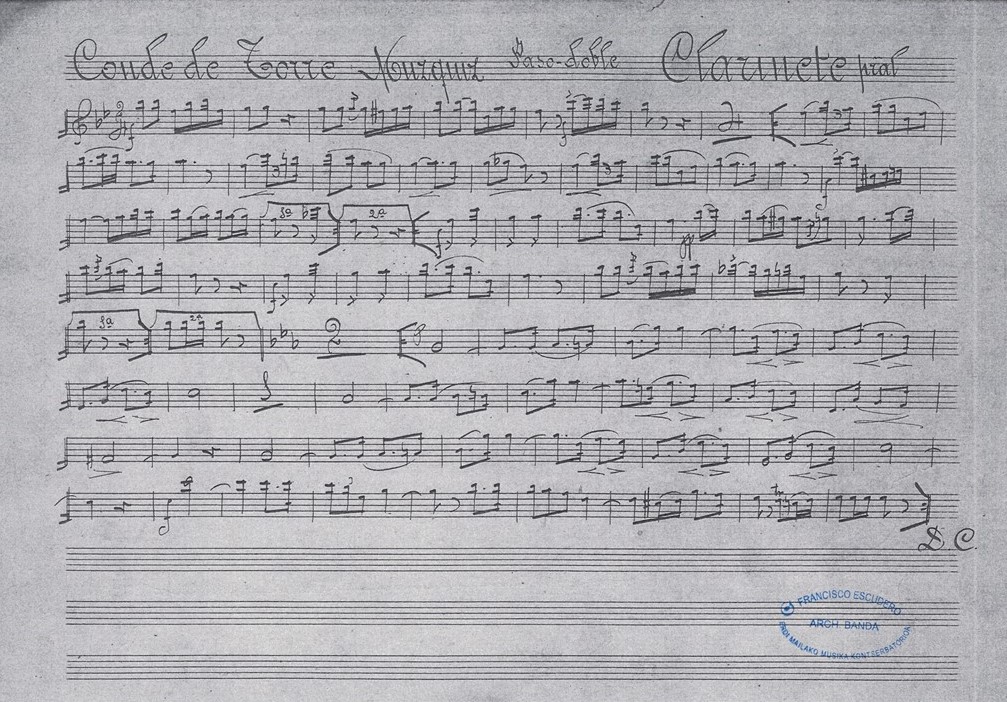 Conde de Torre Muzquiz Paso-doble Clarinete pral
2
f
f
2
f
1a 2a
f
pp
f
1a 2a
2
f
D. C.
FRANCISCO ESCUDERO
ARCH. BANDA
ERDI MAILAKO MUSIKA KONTSERBATORIOA